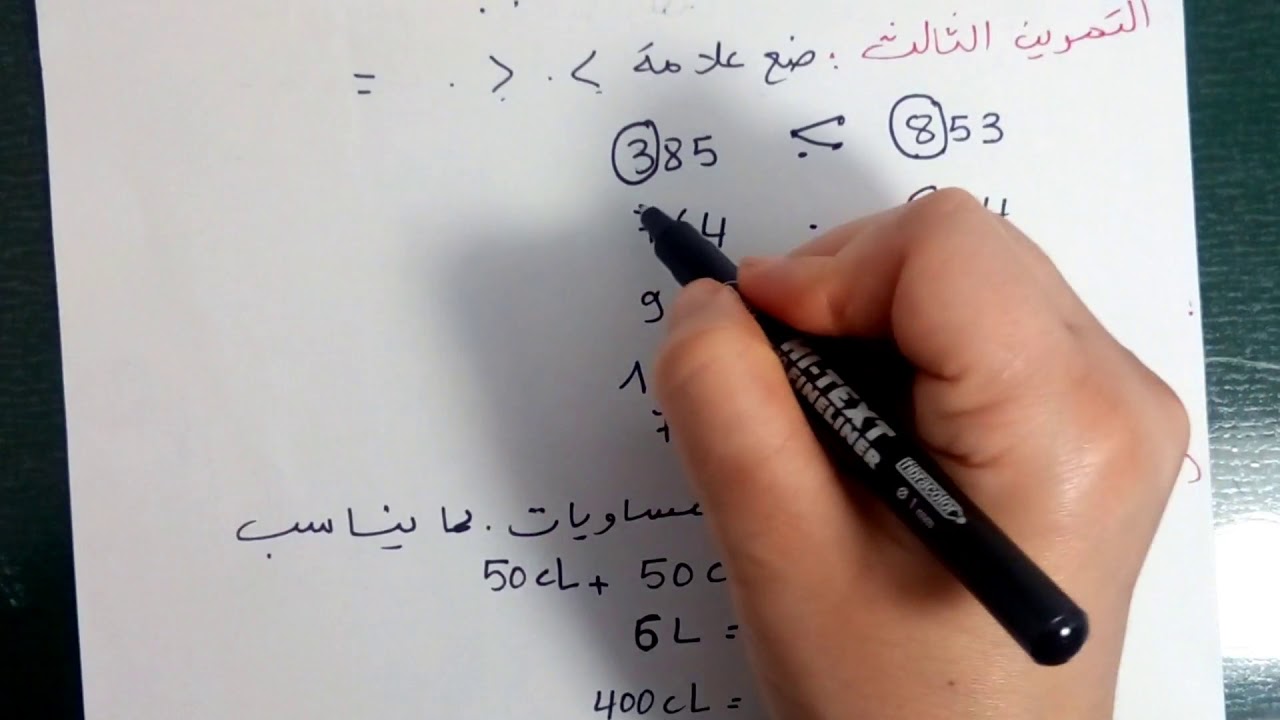 التمرين الثالث : ضع علامة > . < . =
385 < 853
764 .
9
1
7
مساويات . بما يناسب
50cL + 50c
6L =
400cL =
HI-TEXT
FINELINER
fibracolor
Ø 1 mm